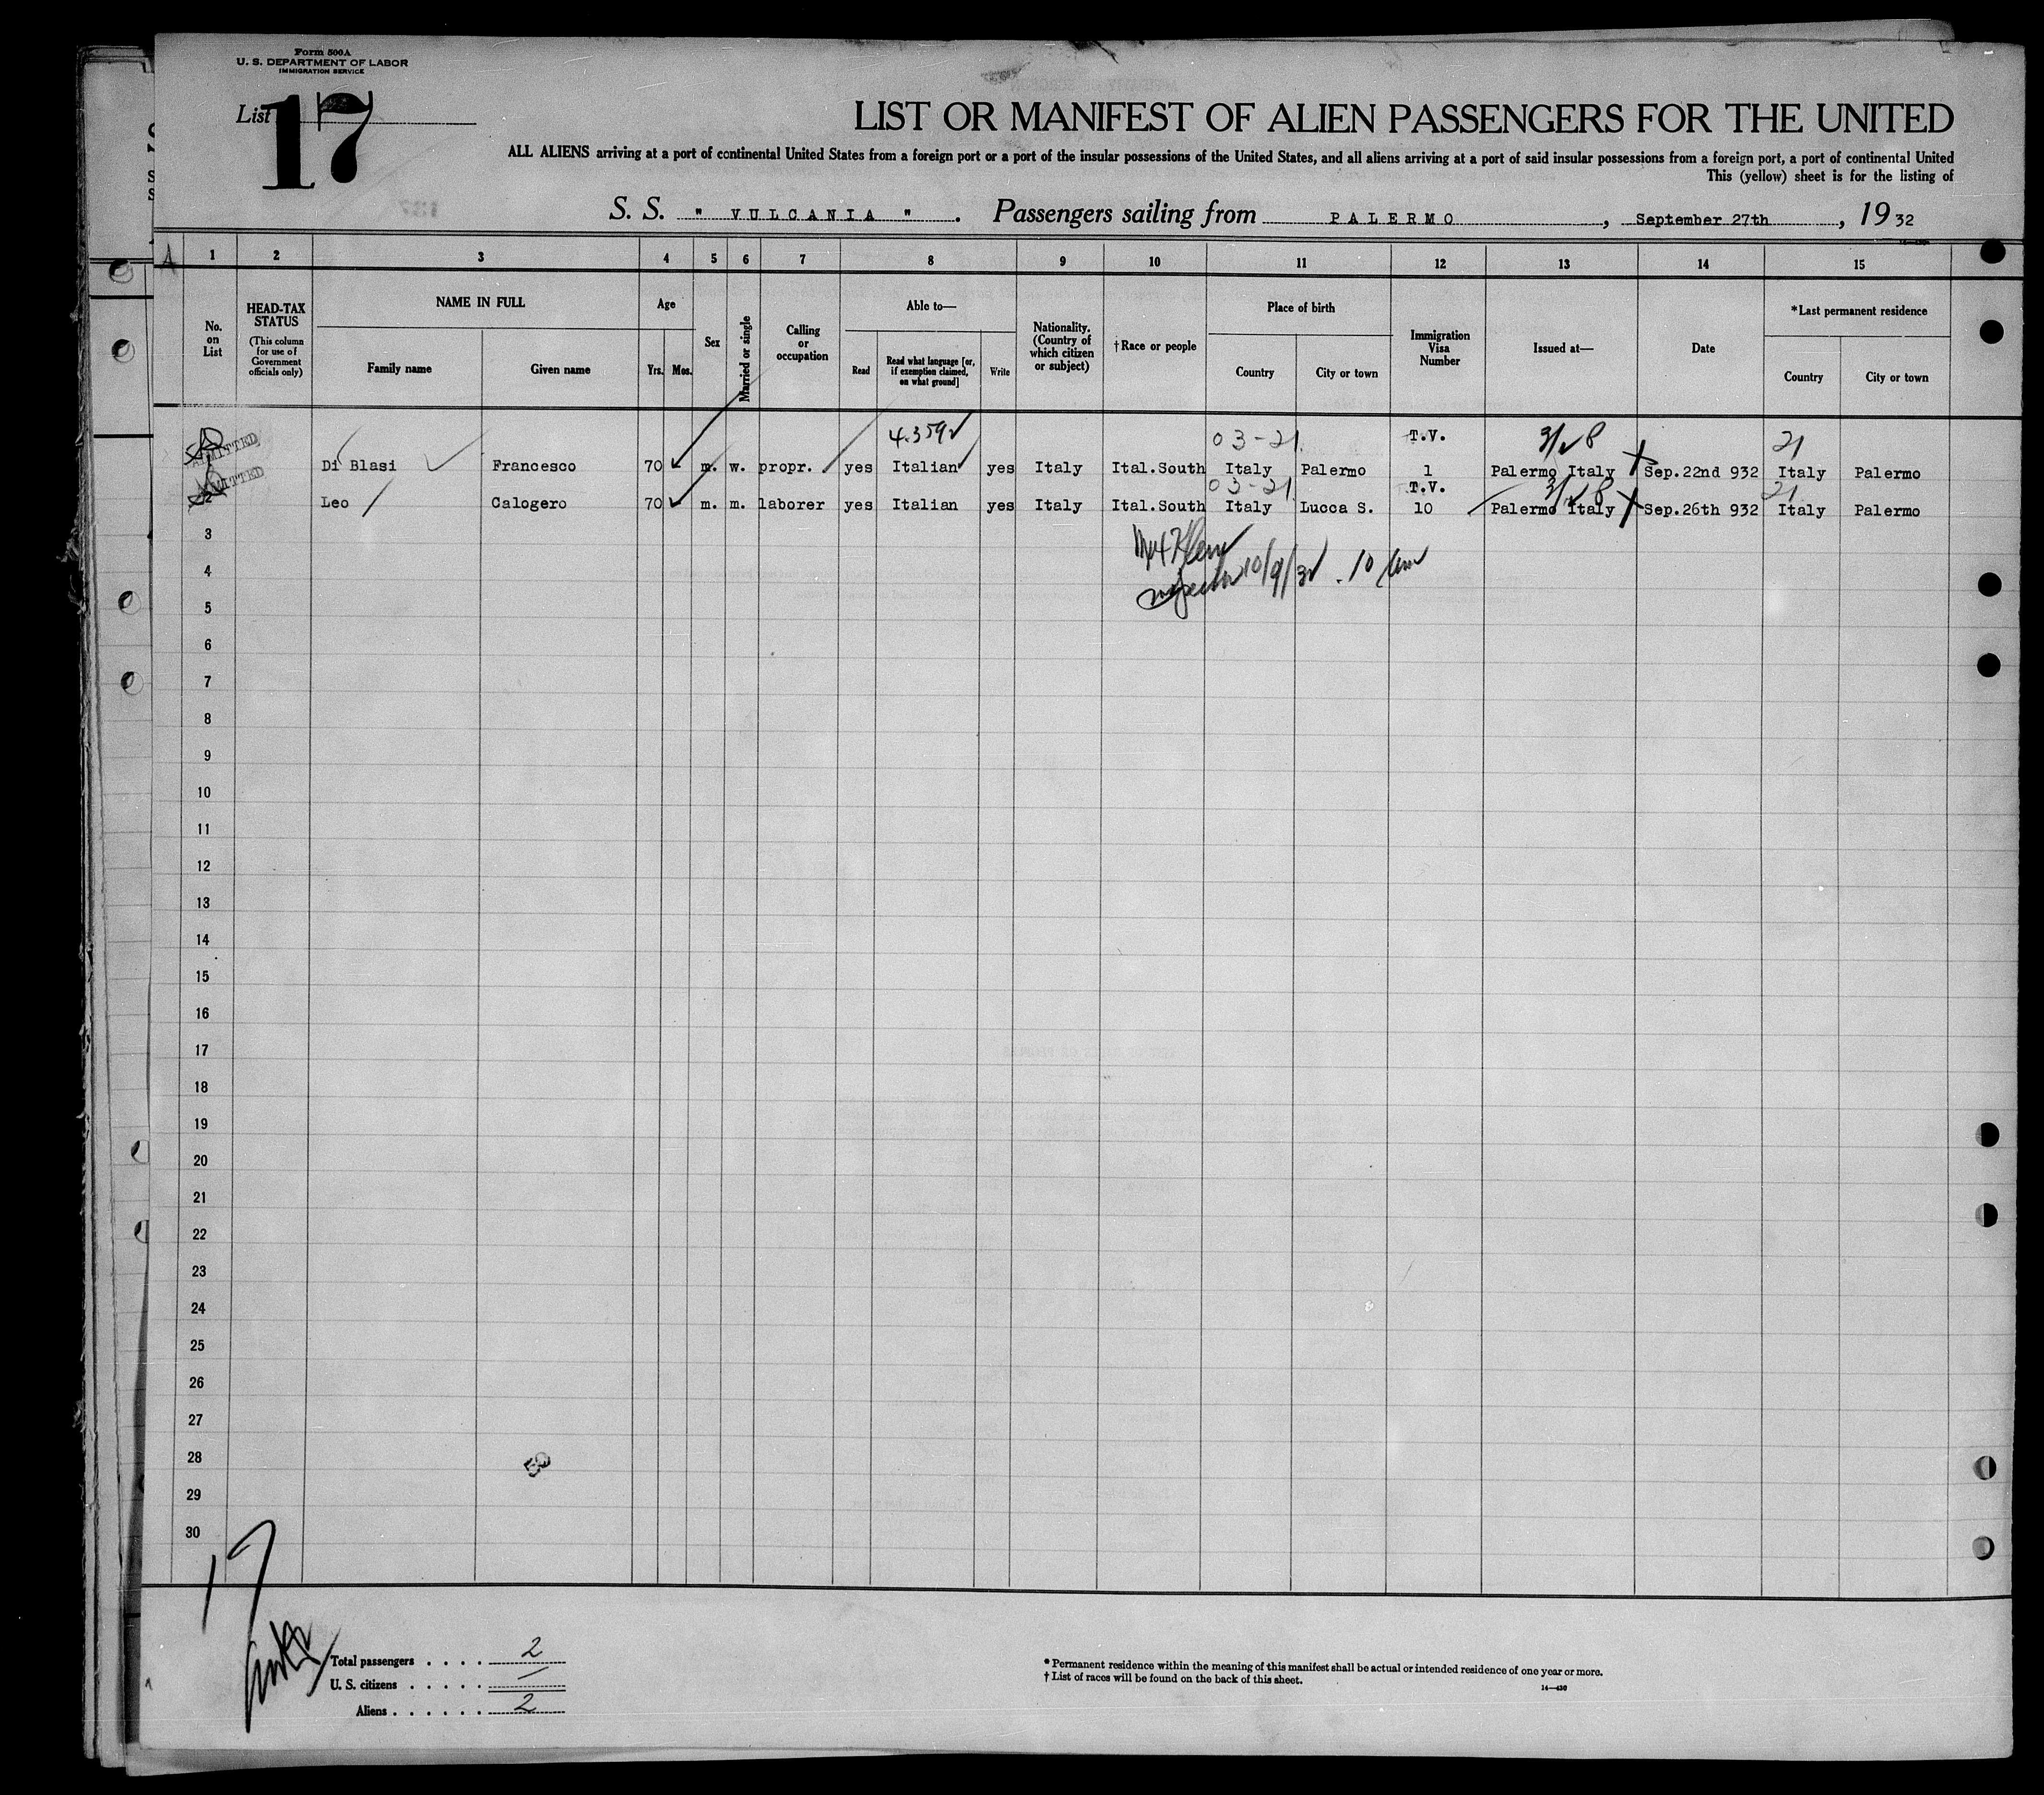 Form 500A
U. S. DEPARTMENT OF LABOR
IMMIGRATION SERVICE
List 17
LIST OR MANIFEST OF ALIEN PASSENGERS FOR THE UNITED
ALL ALIENS arriving at a port of continental United States from a foreign port or a port of the insular possessions of the United States, and all aliens arriving at a port of said insular possessions from a foreign port, a port of continental United
This (yellow) sheet is for the listing of
S. S. " VULCANIA ". Passengers sailing from PALERMO, September 27th, 1932
A 1 2 3 4 5 6 7 8 9 10 11 12 13 14 15
No. on List
HEAD-TAX STATUS (This column for use of Government officials only)
NAME IN FULL
Family name Given name
Age
Yrs. Mos.
Sex
Married or single
Calling or occupation
Able to—
Read
Read what language [or, if exemption claimed, on what ground]
Write
Nationality. (Country of which citizen or subject)
†Race or people
Place of birth
Country City or town
Immigration Visa Number
Issued at—
Date
*Last permanent residence
Country City or town
4.3592 03-21 T.V. 21
ADMITTED Di Blasi Francesco 70 m. w. propr. yes Italian yes Italy Ital.South Italy Palermo 1 Palermo Italy Sep.22nd 932 Italy Palermo
03-21 T.V. 21
ADMITTED 2 Leo Calogero 70 m. m. laborer yes Italian yes Italy Ital.South Italy Lucca S. 10 Palermo Italy Sep.26th 932 Italy Palermo
3
4 10/9/32 . 10 am
5
6
7
8
9
10
11
12
13
14
15
16
17
18
19
20
21
22
23
24
25
26
27
28
29
30
17
Total passengers . . . . 2
U. S. citizens . . . . . —
Aliens . . . . . . 2
* Permanent residence within the meaning of this manifest shall be actual or intended residence of one year or more.
† List of races will be found on the back of this sheet.
14—430